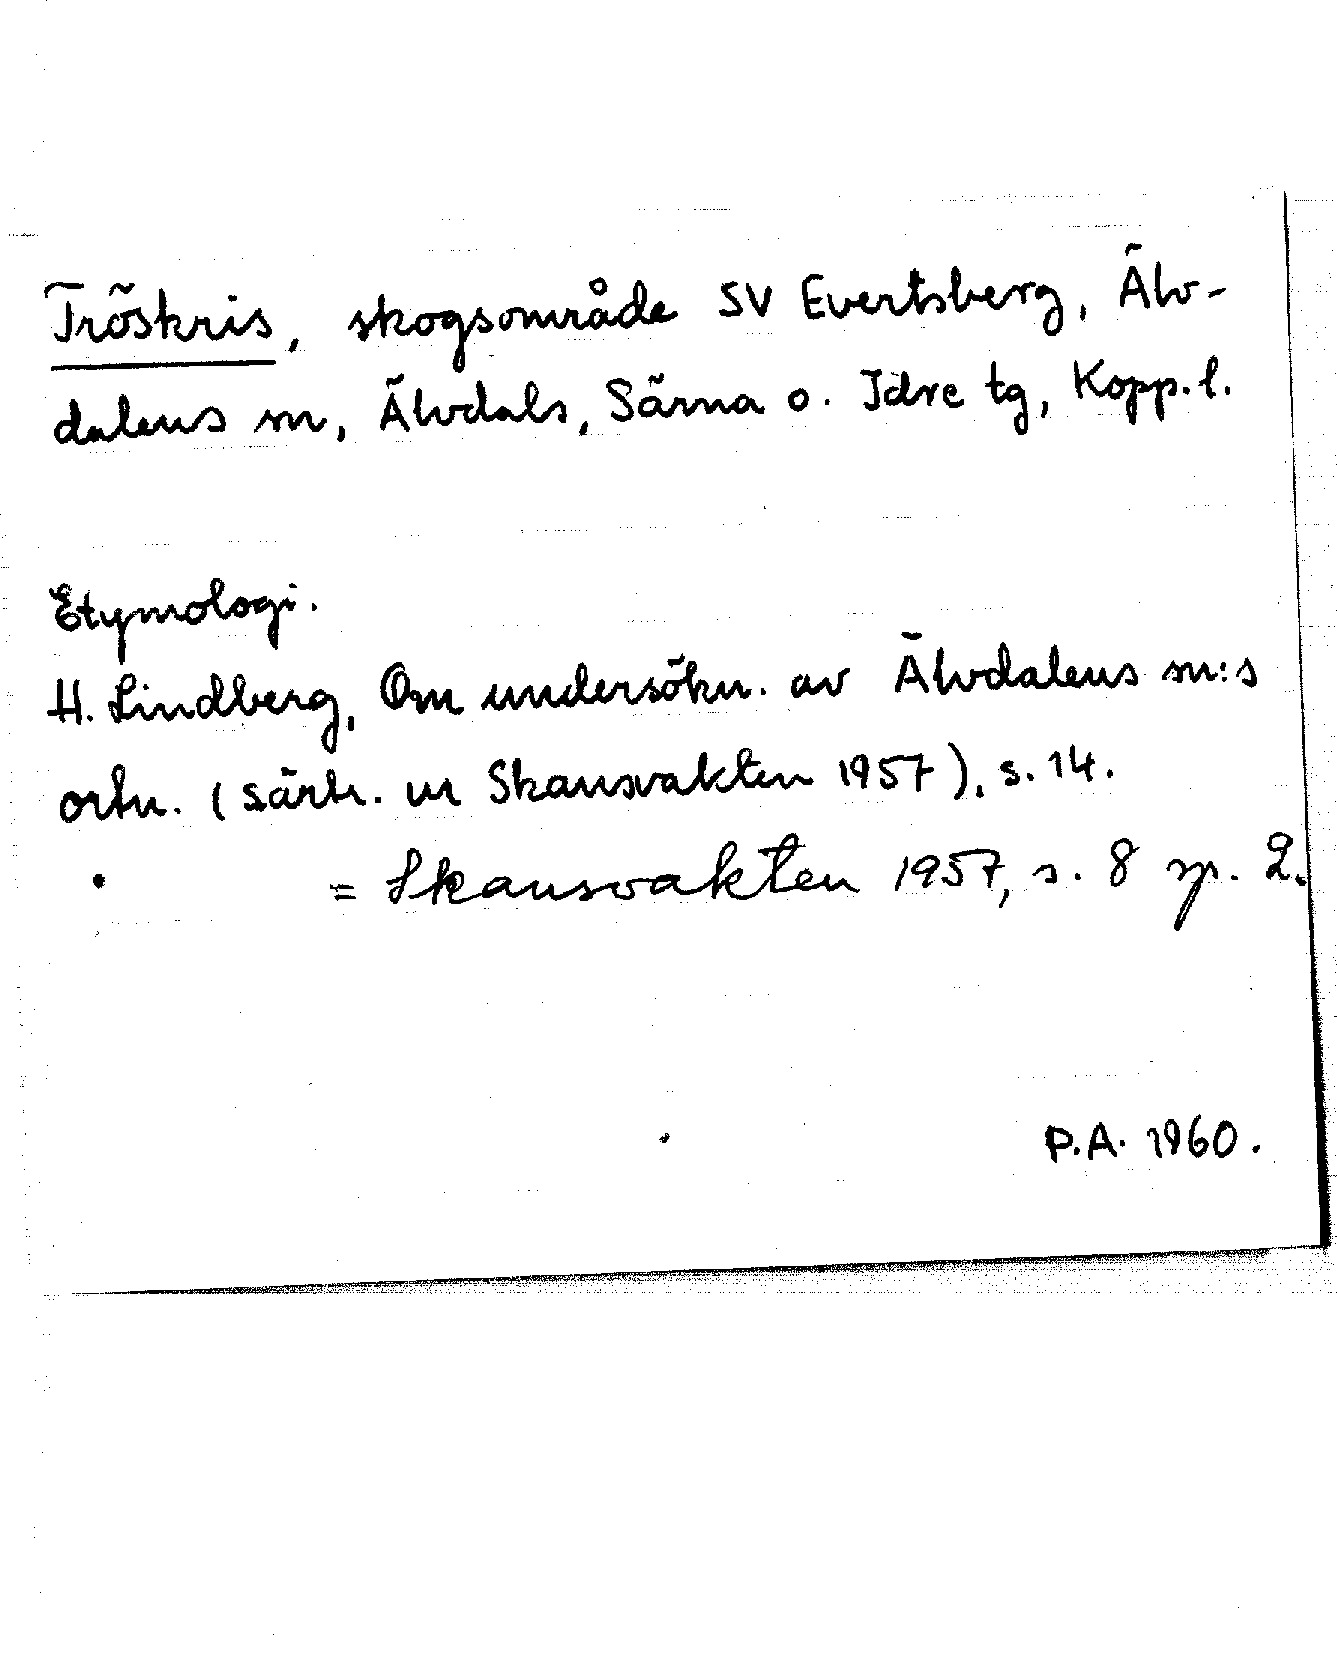 Tröskris, skogsområde SV Evertsberg, Älv-
dalens sn, Älvdals, Särna o. Idre tg, Kopp. l.
Etymologi.
H. Lindberg, Om undersökn. av Älvdalens sn:s
ortn. (särtr. ur Skansvakten 1957), s. 14.
= Skansvakten 1957, s. 8 sp. 2.
P.A. 1960.